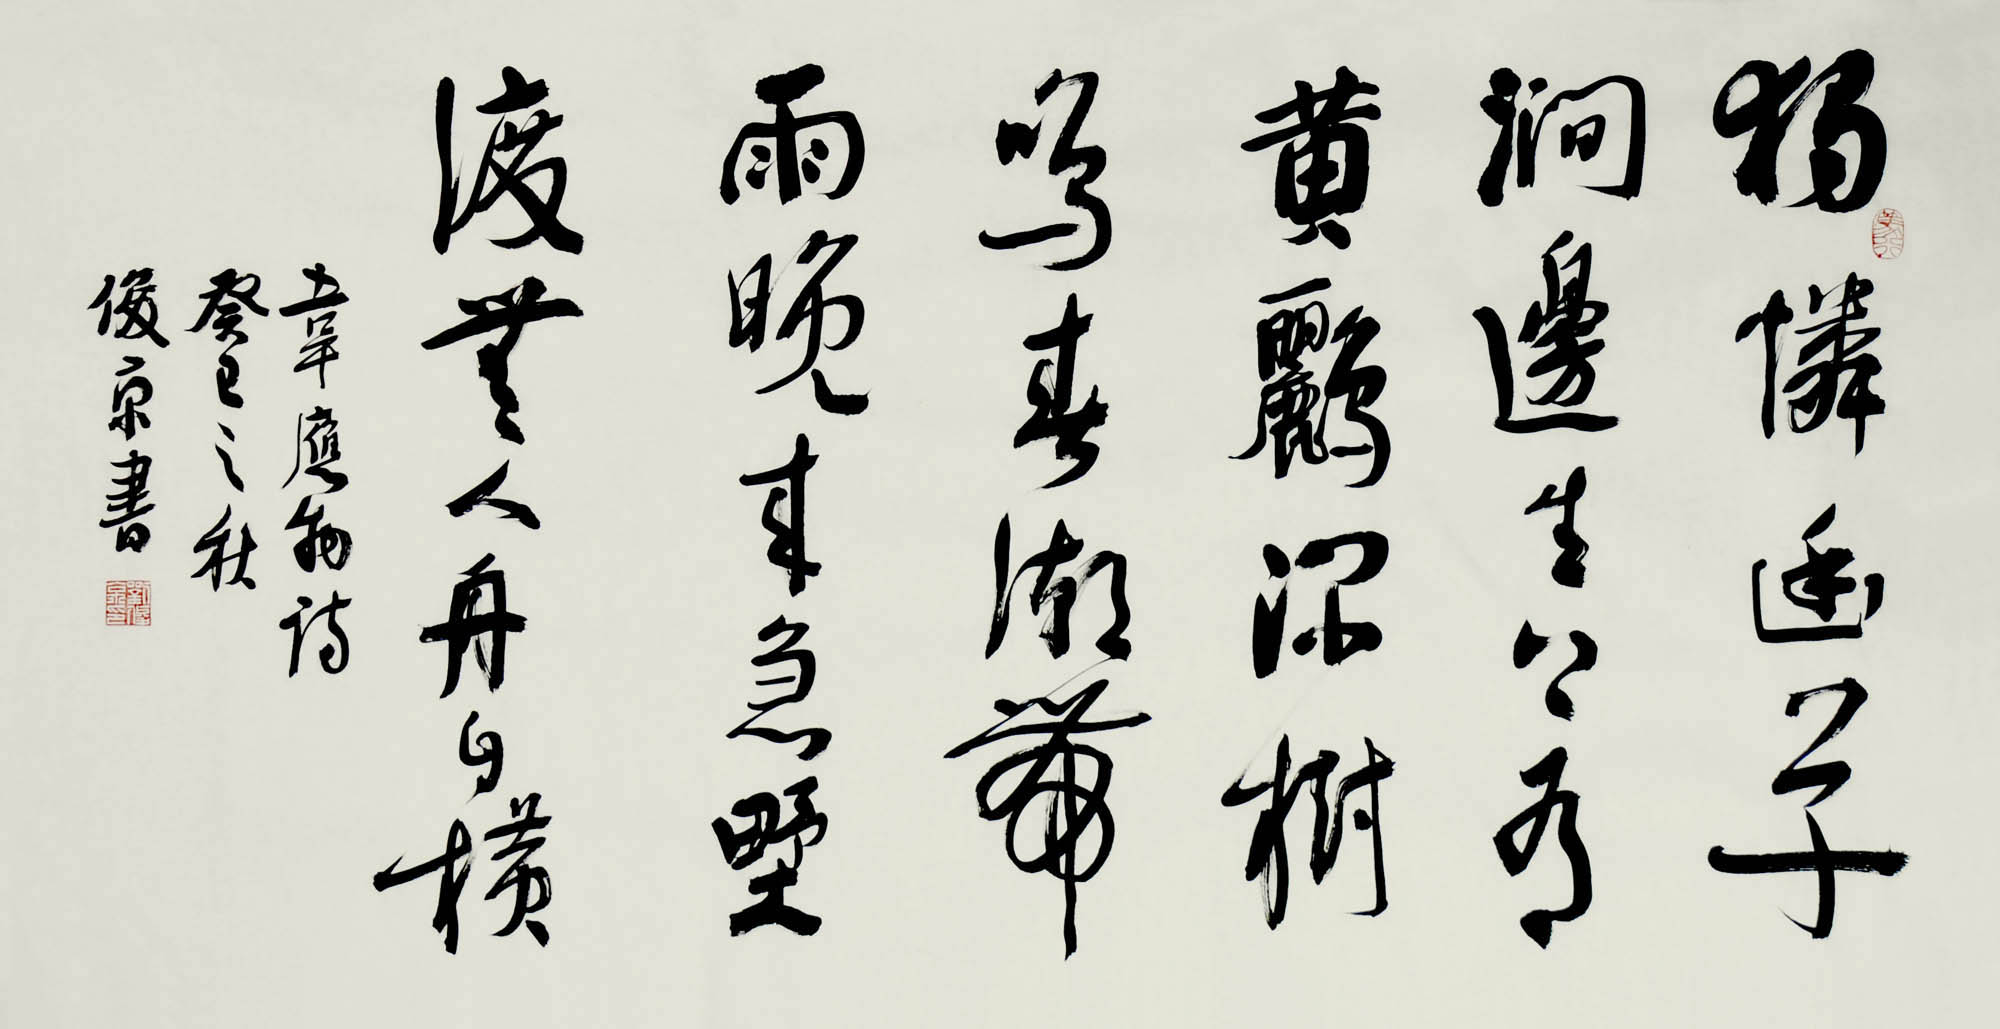 獨憐幽草
澗邊生上有
黄鸝深樹
鳴春潮帶
雨晚来急野
渡無人舟自横
韋應物詩
癸巳之秋
俊京書